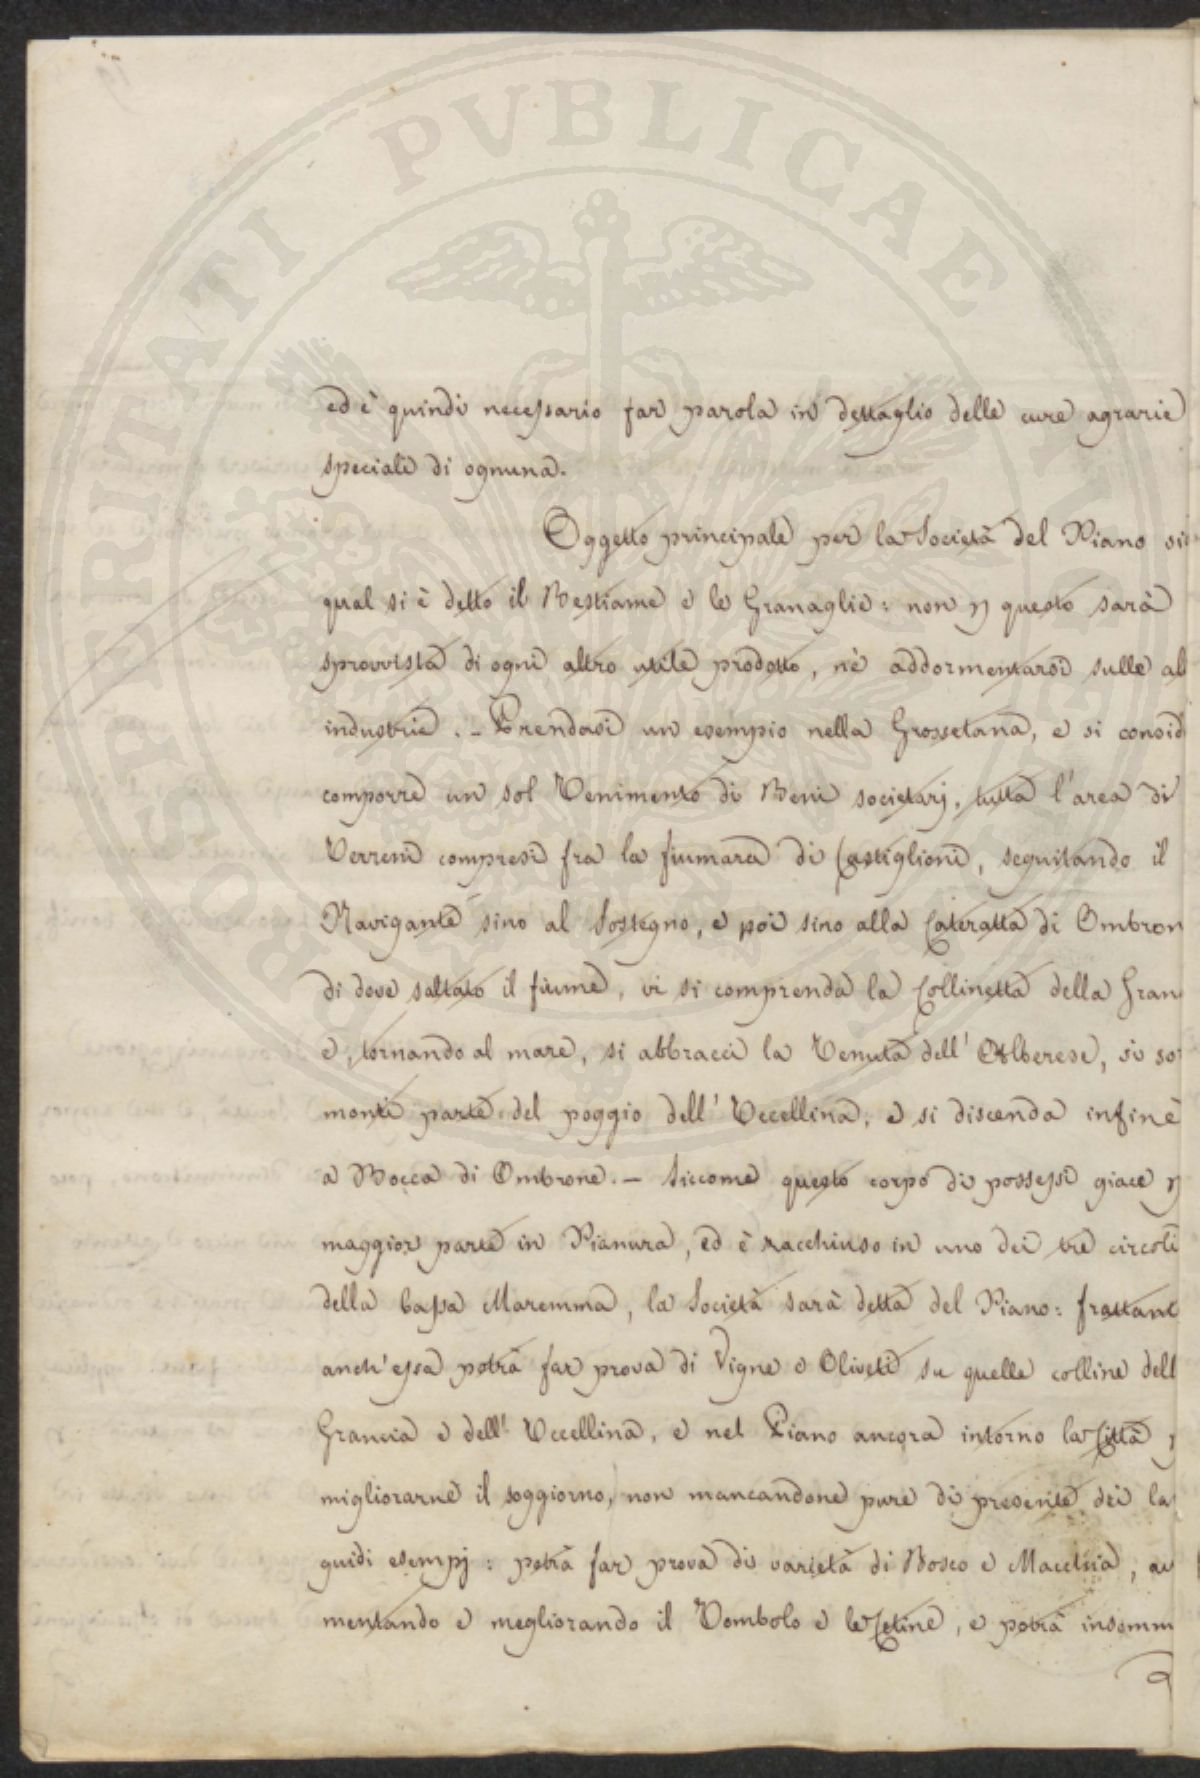 PROSPERITATI PVBLICAE AVGENDAE
ed è quindi necessario far parola in dettaglio delle cure agrarie
speciali di ognuna.
Oggetto principale per la Società del Piano si
qual si è detto il Bestiame e le Granaglie: non p questo sarà
sprovvista di ogni altro utile prodotto, nè addormentarsi sulle al
industrie. - Prendasi un esempio nella Grossetana, e si consid
comporre un sol Tenimento di Beni societarj, tutta l'area di
Terreni compresi fra la fiumara di Castiglione, seguitando il
Navigante sino al Sostegno, e poi sino alla Cateratta di Ombron
di dove saltato il fiume, vi si comprenda la Collinetta della Gran
e, tornando al mare, si abbracci la Tenuta dell' Alberese, si so
monti parte del poggio dell' Uccellina, e si discenda infine
a Bocca di Ombrone. - Siccome questo corpo di possessi giace p
maggior parte in Pianura, ed è racchiuso in uno dei tre circoli
della bassa Maremma, la Società sarà detta del Piano: frattant
anch'essa potrà far prova di Vigne e Oliveti su quelle colline dell
Grancia e dell' Uccellina, e nel Piano ancora intorno la Città p
migliorarne il soggiorno, non mancandone pure di presente dei la
guidi esempj: potrà far prova di varietà di Bosco e Macchia, au
mentando e megliorando il Tombolo e le Cetine, e potrà insomm